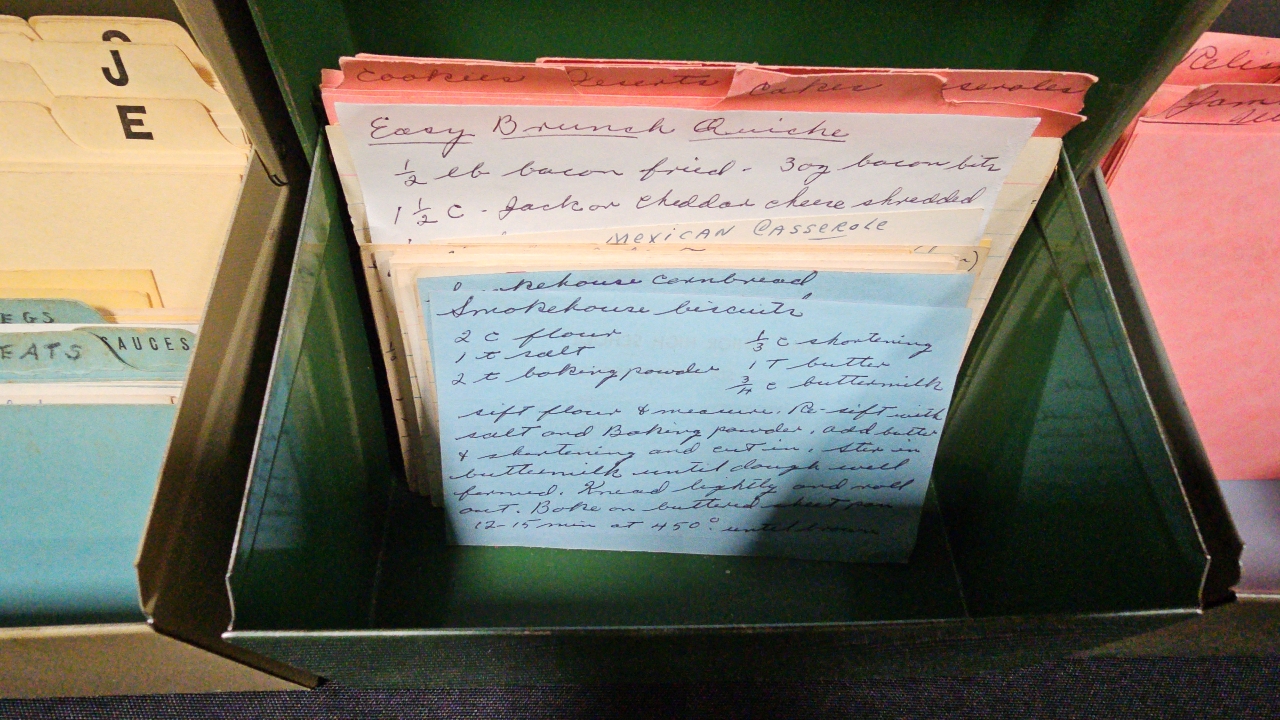 J
E
EGS
EATS
SAUCES
Cookies
Deserts
Cakes
seroles
Relis
Jam
Easy Brunch Quiche
1/2 lb bacon fried - 3oz bacon bits
1 1/2 C - Jack or Cheddar cheese shredded
MEXICAN CASSEROLE
kehouse cornbread
Smokehouse biscuits
2 c flour
1 t salt
2 t baking powder
1/3 c shortening
1 T butter
3/4 c buttermilk
sift flour & measure. Re-sift with
salt and Baking powder, add butter
& shortening and cut in, stir in
buttermilk until dough well
formed. Knead lightly and roll
out. Bake on buttered sheet pan
12-15 min at 450° until brown